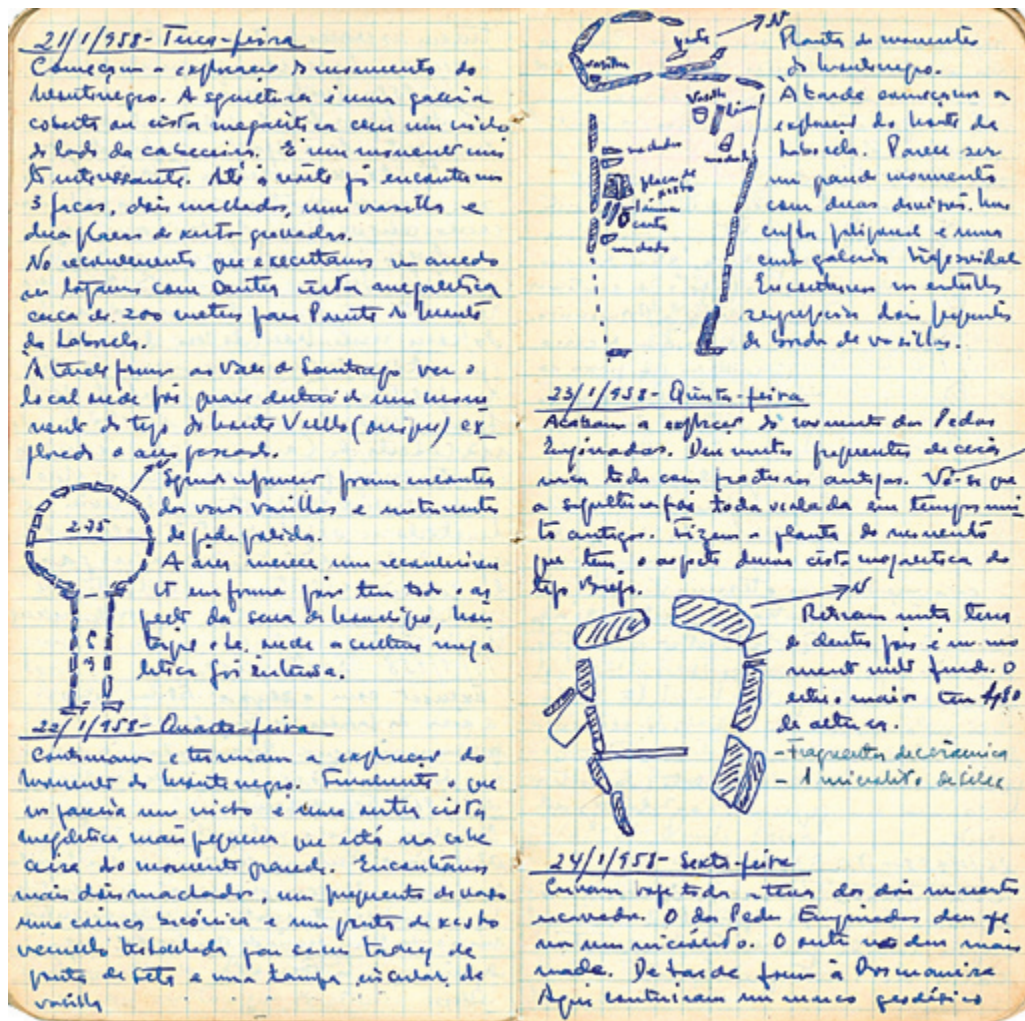 21/1/958 - Terça-feira
Começam a exploração do monumento do
Montenegro. A sepultura é uma galeria
coberta ou cista megalítica com um nicho
do lado da cabeceira. É um monumento mui
to interessante. Até à noite já encontramos
3 facas, dois machados, uma vasilha e
duas placas de xisto gravadas.
No reconhecimento que executamos
outra cista megalítica
cerca de 200 metros para Poente do Monte
da Laborela.
À tarde fomos ao Vale de Santiago ver o
local onde foi quase destruído um monu
mento do tipo do Monte Velho (Ourique) ex-
plorado o ano passado.
N
Segundo informaram foram encontrados
vasilhas e instrumentos
de pedra polida.
2.75
A área merece um reconhecimen
to em forma pois tem todo o as
pecto da serra de Monchique,
onde a cultura mega
lítica foi intensa.
22/1/958 - Quarta-feira
Continuam e terminam a exploração do
monumento do Montenegro. Finalmente o que
nos parecia um nicho é uma outra cista
megalítica mais pequena que está na cabe
ceira do monumento grande. Encontramos
mais dois machados, um fragmento de vaso
uma bicónica e uma ponta de xisto
vermelho trabalhada
ponta de seta e uma tampa circular de
vasilha
N
vasilha
Vasilha
machado
machado
placa de
xisto
lâmina
machado
Planta do monumento
do Montenegro.
À tarde começam a
explorar do Monte da
Laborela. Parece ser
um grande monumento
com duas divisões. Uma
cripta poligonal e uma
curta galeria trapezoidal
Encontramos no entulho
dois fragmentos
de borda de vasilhas.
23/1/958 - Quinta-feira
Acabam a exploração do monumento das Pedras
Enginadas. Deu muitos fragmentos de cerâ
mica todos com fracturas antigas. Vê-se que
a sepultura foi toda violada em tempos mui
to antigos. Fizemos a planta do monumento
que tem o aspecto duma cista megalítica do
tipo Brejo.
N
Retiram muita terra
de dentro pois é um mo
numento muito fundo. O
esteio maior tem 1,80
de altura.
- Fragmentos de cerâmica
- 1 micrólito de sílex
24/1/958 - Sexta-feira
toda a terra dos dois monumentos
escavados. O das Pedras Enginadas deu ape
nas um micrólito. O outro não deu mais
nada. De tarde fomos à
Aqui construiram um marco geodésico